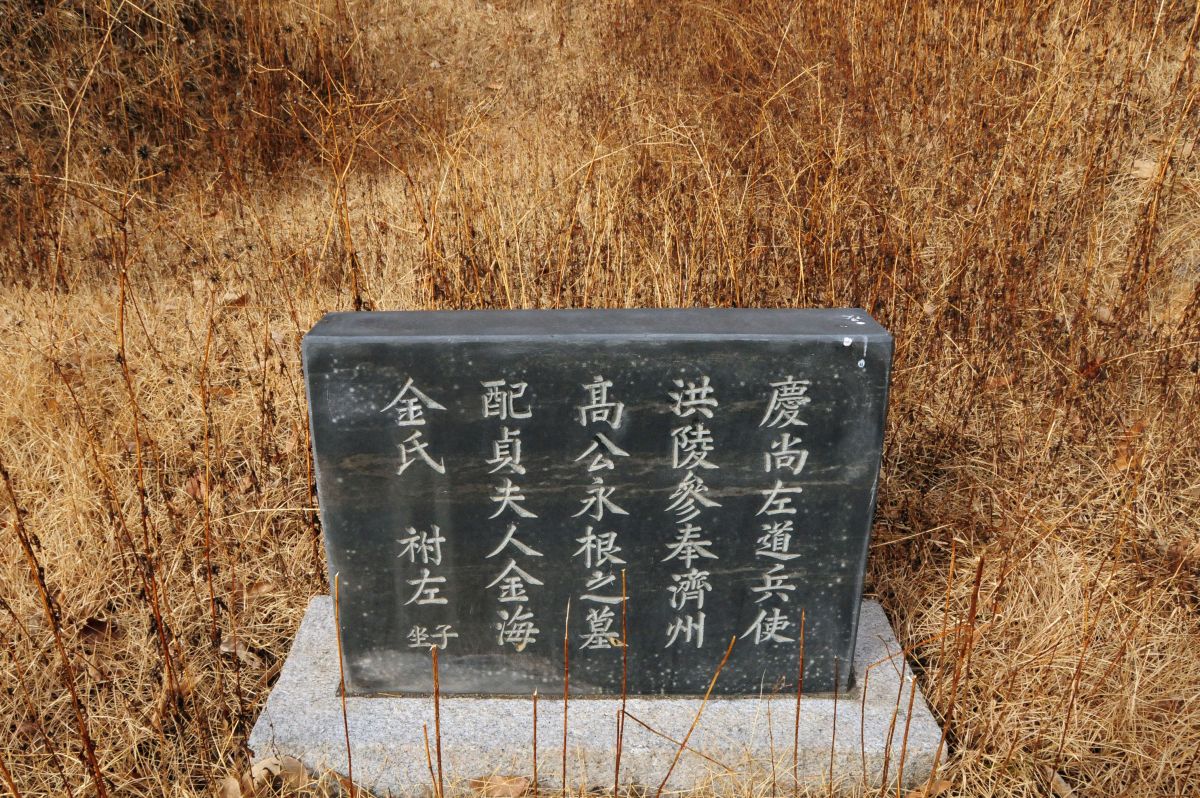 慶尚左道兵使
洪陵參奉濟州
高公永根之墓
配貞夫人金海
金氏 祔左
子坐